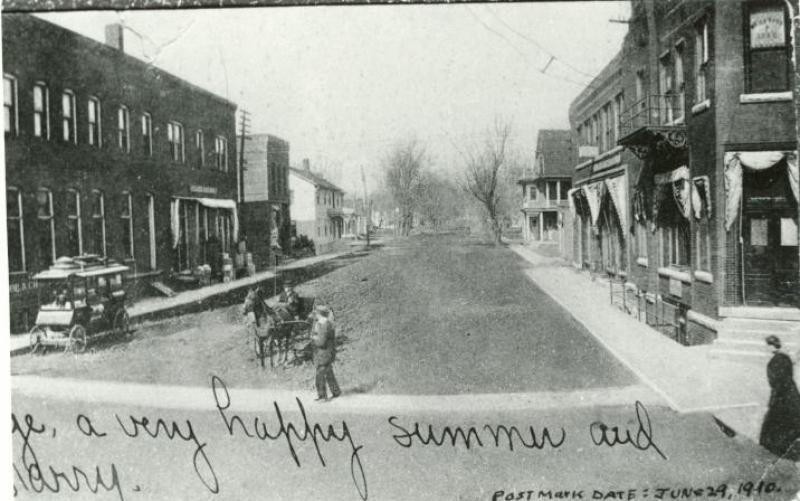 ge, a very happy summer and
Harry.
POSTMARK DATE: JUNE 29, 1910.